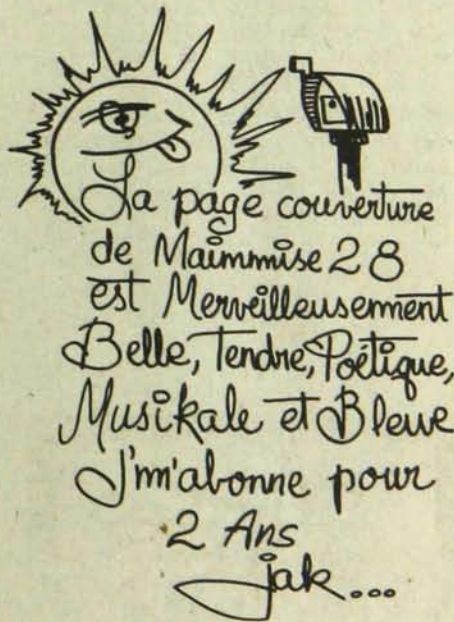 La page couverture
de Mainmise 28
est Merveilleusement
Belle, Tendre, Poétique,
Musikale et Bleue
J'm'abonne pour
2 Ans
jak...